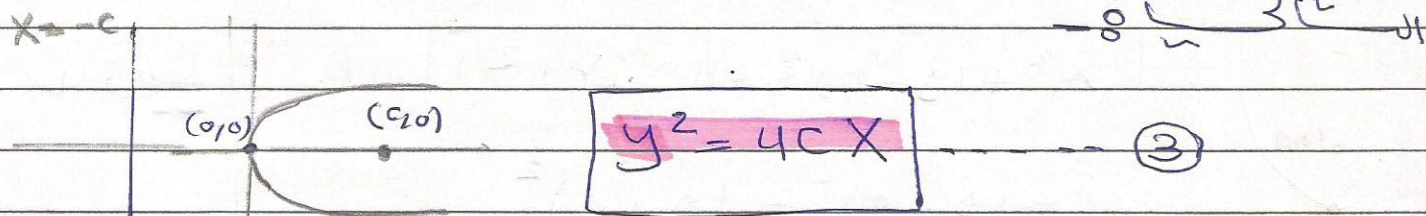 X = -c
(0,0) (c,0) y² = 4cX ------ ③